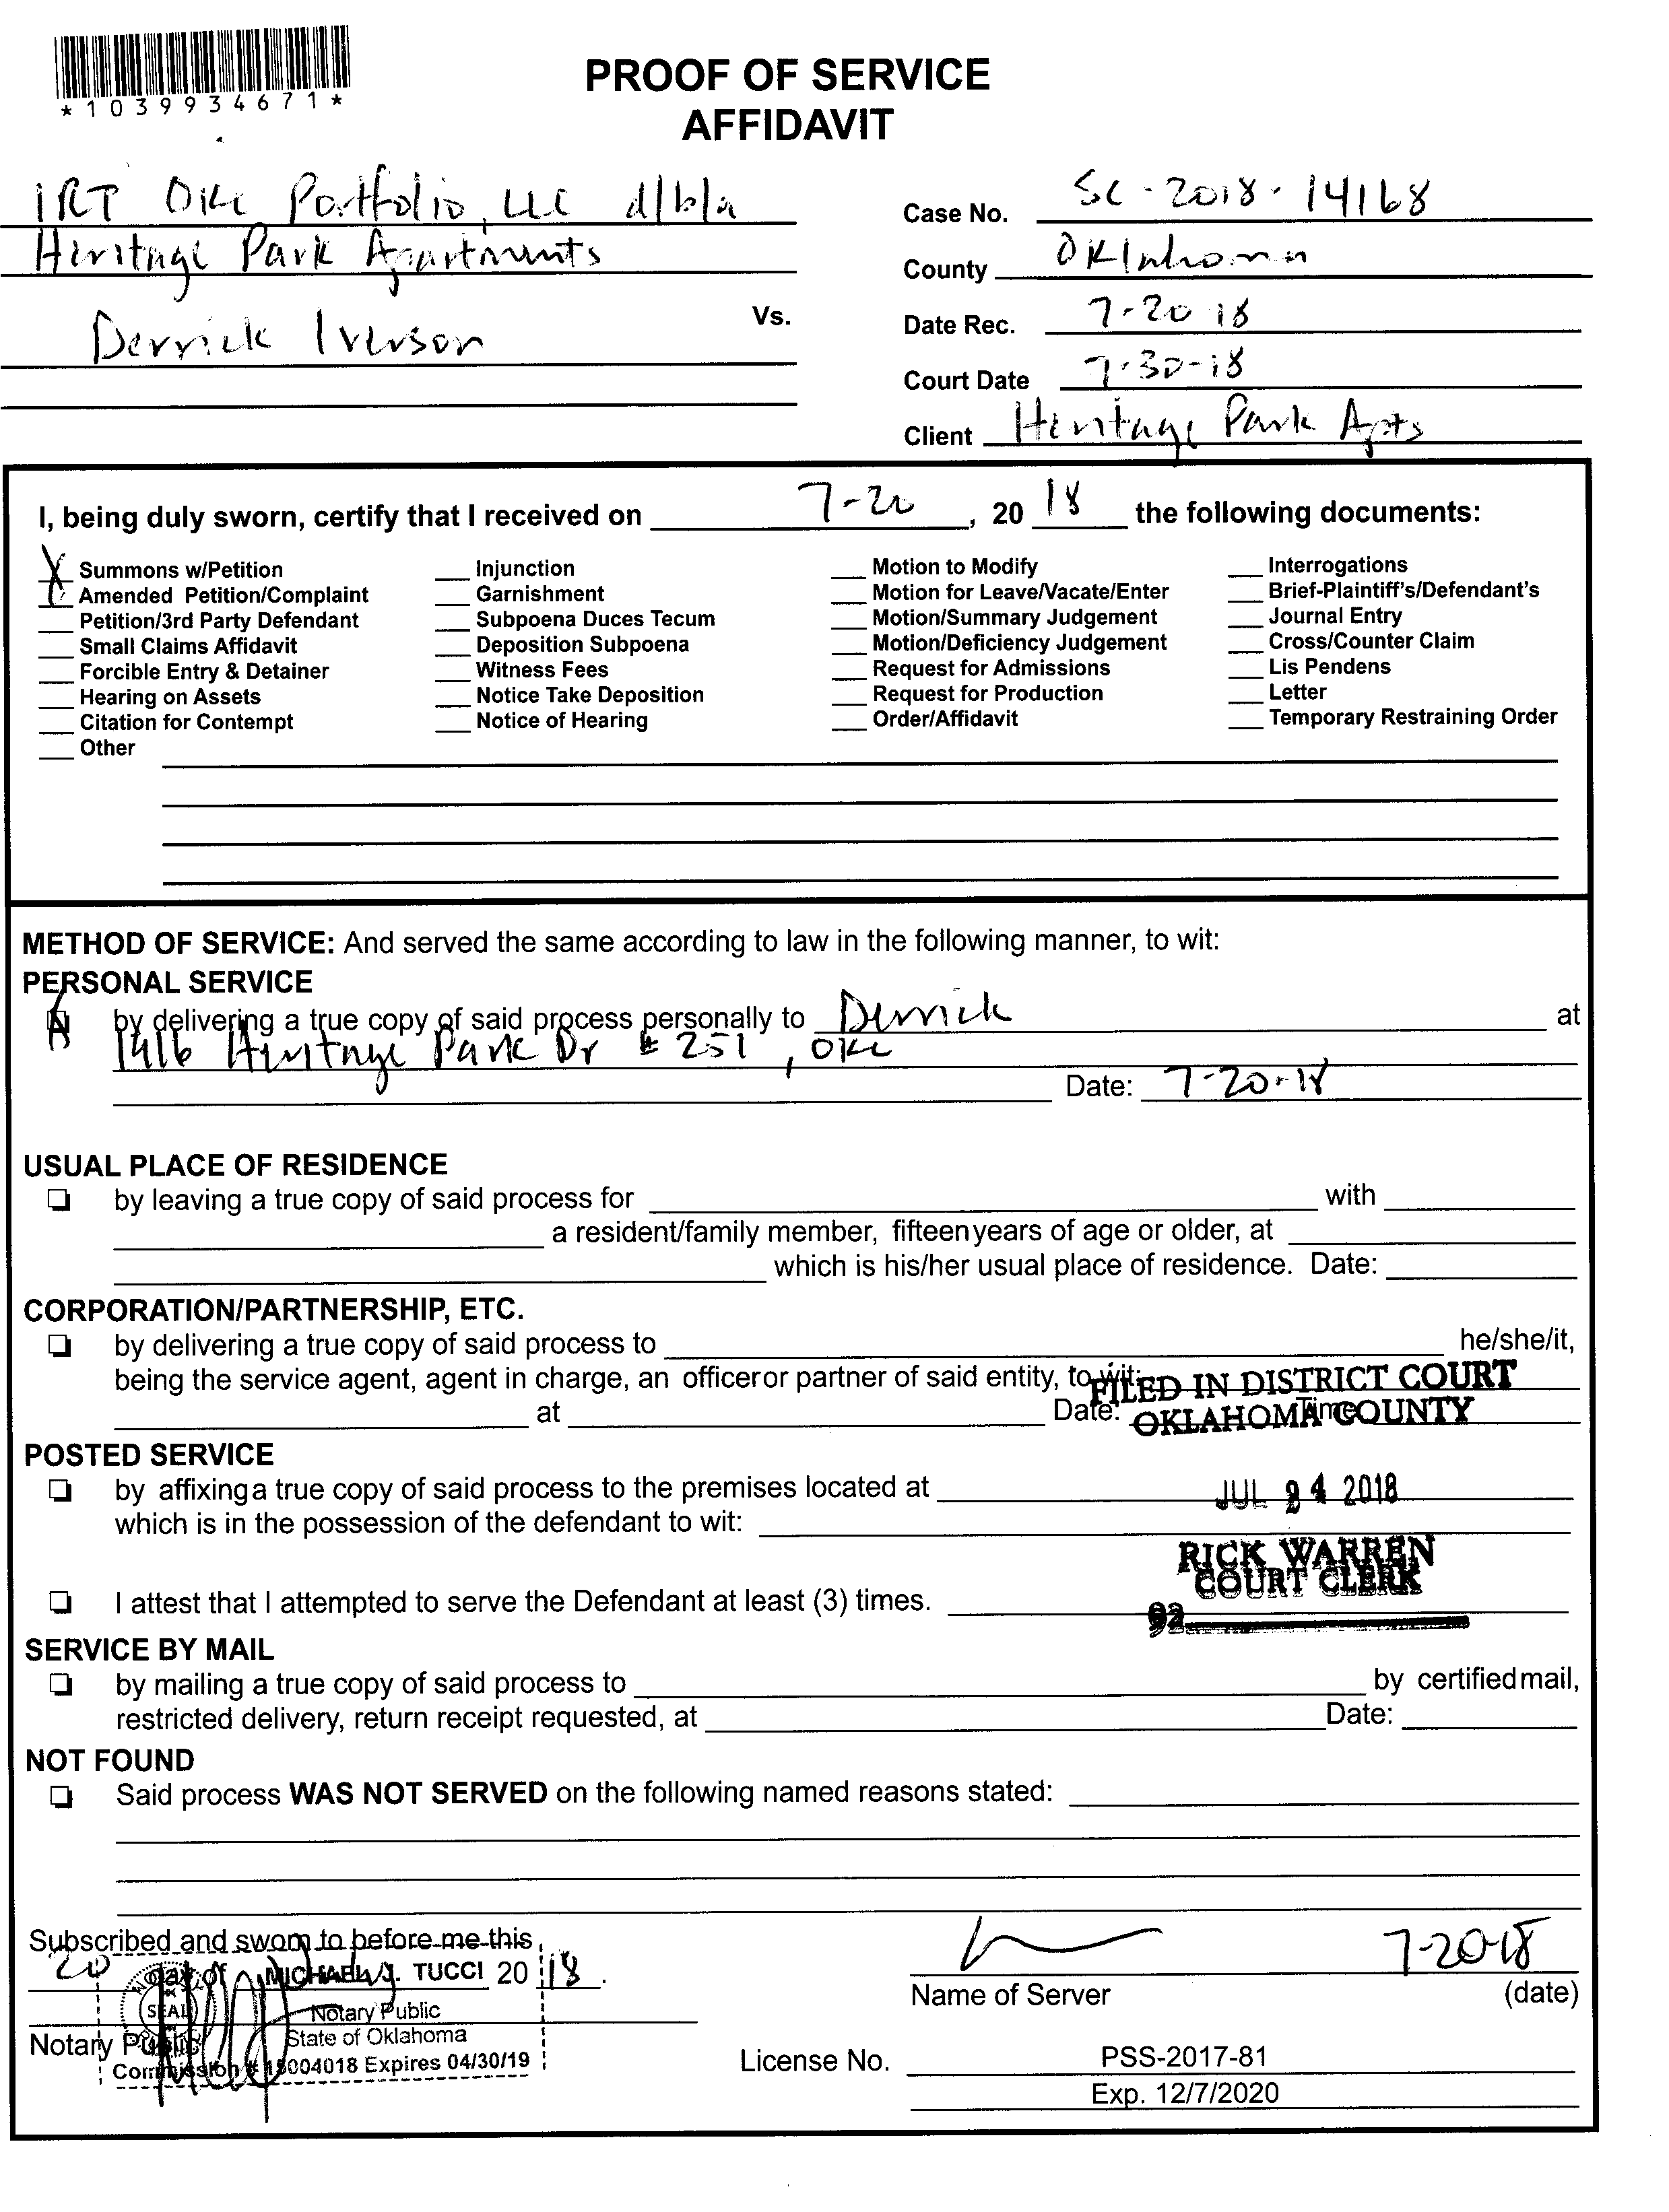 *1039934671*
PROOF OF SERVICE
AFFIDAVIT
IRT OKC Portfolio, LLC d/b/a
Heritage Park Apartments
Vs.
Derrick Iverson
Case No. SC-2018-14168
County Oklahoma
Date Rec. 7-20 18
Court Date 7-30-18
Client Heritage Park Apts
I, being duly sworn, certify that I received on 7-20, 20 18 the following documents:
X Summons w/Petition
Amended Petition/Complaint
Petition/3rd Party Defendant
Small Claims Affidavit
Forcible Entry & Detainer
Hearing on Assets
Citation for Contempt
Other
Injunction
Garnishment
Subpoena Duces Tecum
Deposition Subpoena
Witness Fees
Notice Take Deposition
Notice of Hearing
Motion to Modify
Motion for Leave/Vacate/Enter
Motion/Summary Judgement
Motion/Deficiency Judgement
Request for Admissions
Request for Production
Order/Affidavit
Interrogations
Brief-Plaintiff's/Defendant's
Journal Entry
Cross/Counter Claim
Lis Pendens
Letter
Temporary Restraining Order
METHOD OF SERVICE: And served the same according to law in the following manner, to wit:
PERSONAL SERVICE
by delivering a true copy of said process personally to Derrick at
1416 Heritage Park Dr # 251, OKC
Date: 7-20-18
USUAL PLACE OF RESIDENCE
by leaving a true copy of said process for with
a resident/family member, fifteen years of age or older, at
which is his/her usual place of residence. Date:
CORPORATION/PARTNERSHIP, ETC.
by delivering a true copy of said process to he/she/it,
being the service agent, agent in charge, an officer or partner of said entity, to wit:
at Date: Time
FILED IN DISTRICT COURT
OKLAHOMA COUNTY
POSTED SERVICE
by affixing a true copy of said process to the premises located at
JUL 24 2018
which is in the possession of the defendant to wit:
RICK WARREN
COURT CLERK
I attest that I attempted to serve the Defendant at least (3) times.
92
SERVICE BY MAIL
by mailing a true copy of said process to by certified mail,
restricted delivery, return receipt requested, at Date:
NOT FOUND
Said process WAS NOT SERVED on the following named reasons stated:
Subscribed and sworn to before me this
20 day of 20 18.
MICHAEL J. TUCCI
SEAL
Notary Public
State of Oklahoma
Commission # 15004018 Expires 04/30/19
Notary Public
7-20-18
Name of Server (date)
License No. PSS-2017-81
Exp. 12/7/2020